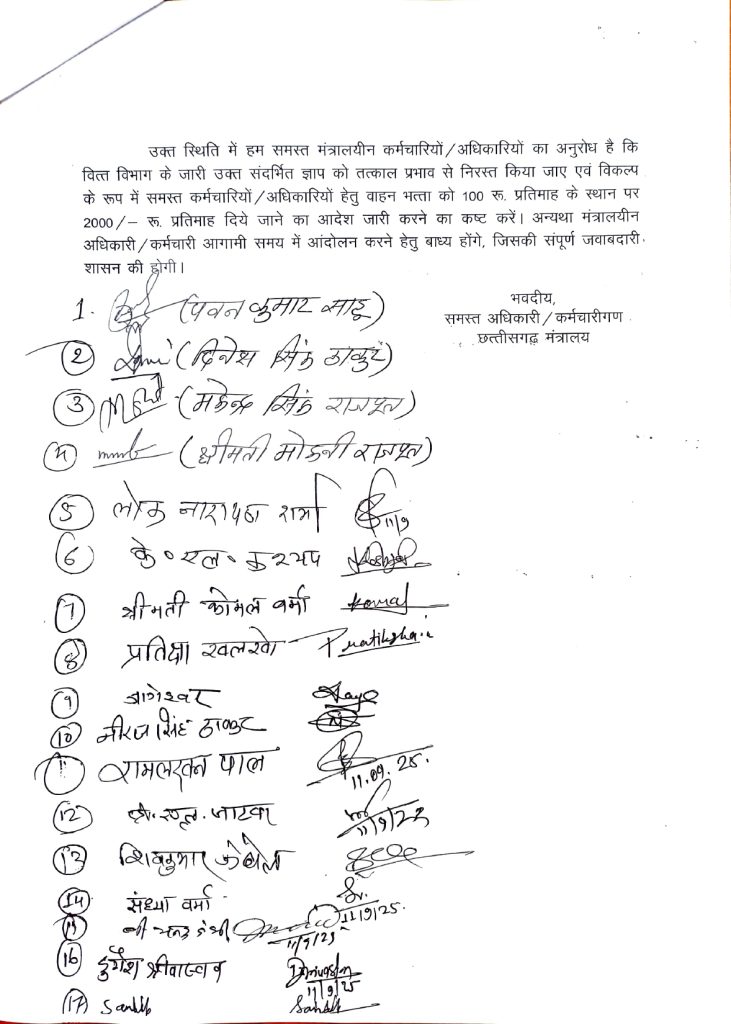 उक्त स्थिति में हम समस्त मंत्रालयीन कर्मचारियों/अधिकारियों का अनुरोध है कि
वित्त विभाग के जारी उक्त संदर्भित ज्ञाप को तत्काल प्रभाव से निरस्त किया जाए एवं विकल्प
के रूप में समस्त कर्मचारियों/अधिकारियों हेतु वाहन भत्ता को 100 रू. प्रतिमाह के स्थान पर
2000/– रू. प्रतिमाह दिये जाने का आदेश जारी करने का कष्ट करें। अन्यथा मंत्रालयीन
अधिकारी/कर्मचारी आगामी समय में आंदोलन करने हेतु बाध्य होंगे, जिसकी संपूर्ण जवाबदारी
शासन की होगी।
भवदीय,
समस्त अधिकारी/कर्मचारीगण
छत्तीसगढ़ मंत्रालय
1. (पवन कुमार साहू)
2 (दिनेश सिंह ठाकुर)
3 (महेन्द्र सिंह राजपूत)
4 (श्रीमती मोहनी राजपूत)
5 लोक नारायण शर्मा 11/9
6 के॰ एल॰ कश्यप
7 श्रीमती कोमल वर्मा Komal
8 प्रतिक्षा खलखो Pratiksha
9 जागेश्वर
10 नीरज सिंह ठाकुर
रामलखन पाल 11.09.25.
12 जाटवर
13 शिवकुमार
14 संध्या वर्मा 11/9/25.
15 11/9/25
16 दुर्गेश श्रीवास्तव 11/9/25
17